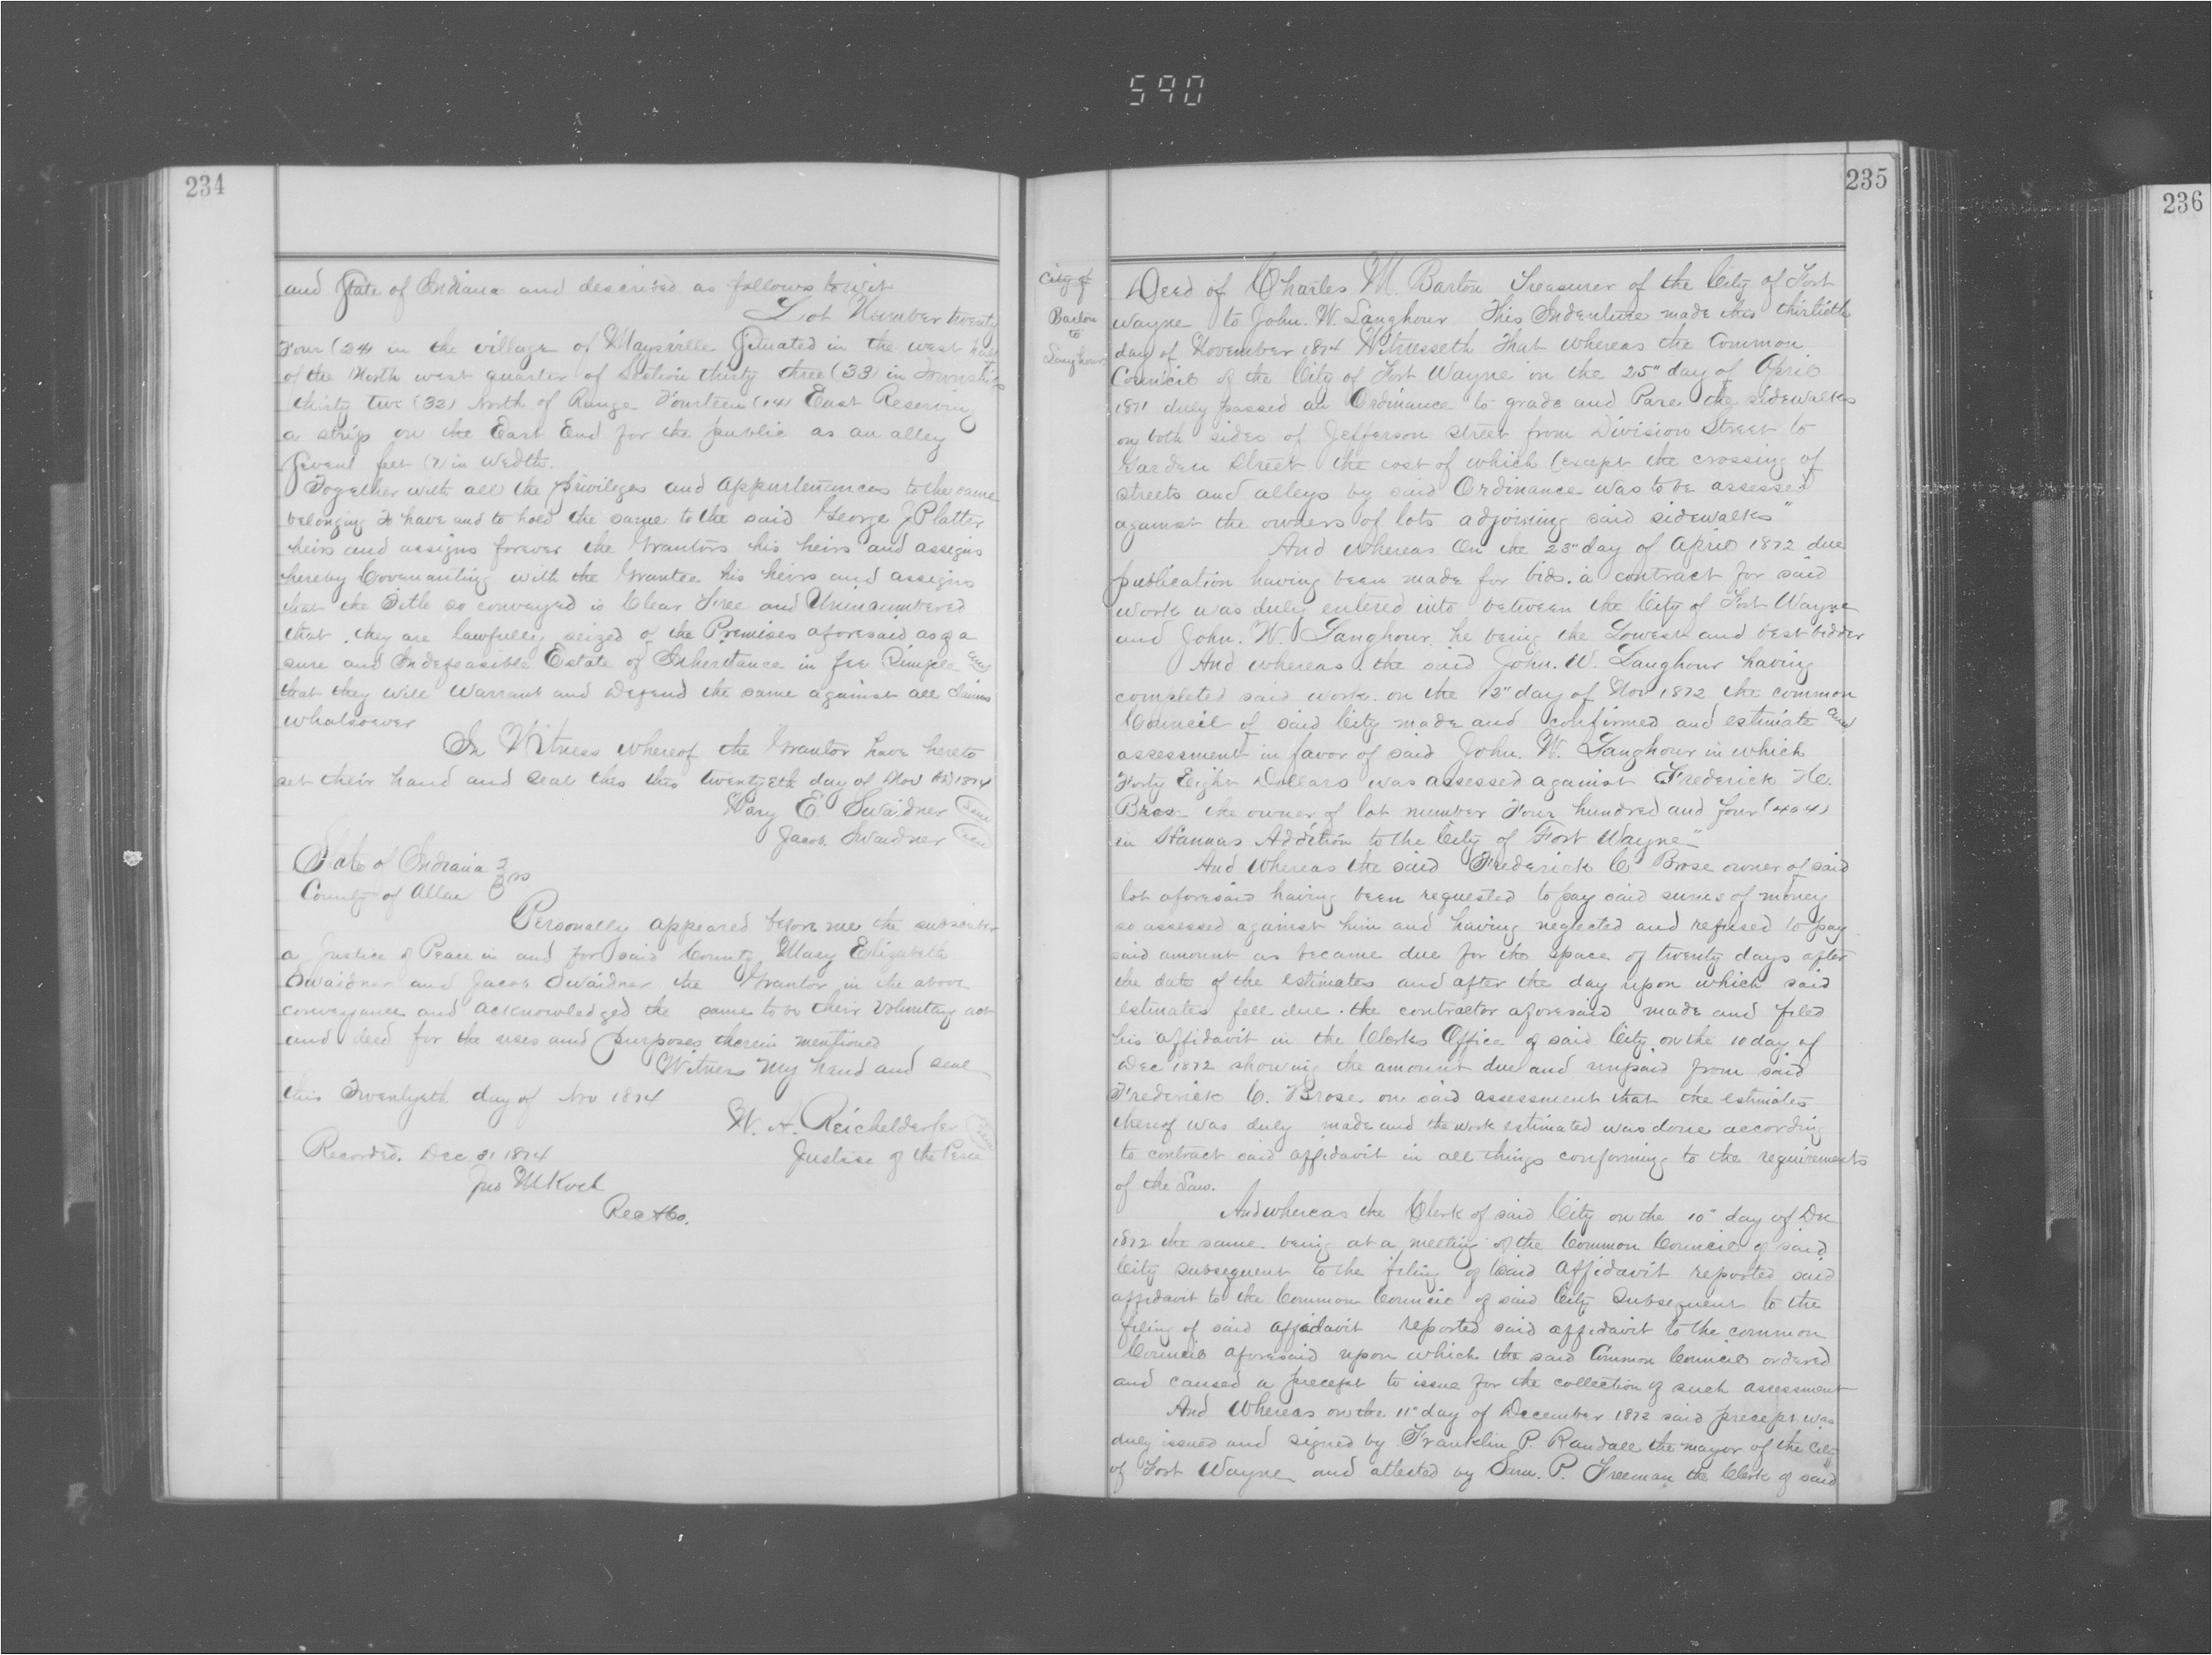 590
234
and State of Indiana and described as follows to wit
Lot Number twenty
Four (24) in the village of Maysville Situated in the west half
of the North west quarter of Section thirty three (33) in Township
thirty two (32) North of Range Fourteen (14) East Reserving
a strip on the East End for the public as an alley
Seven feet (7) in Wedth.
Together with all the privileges and appurtenances to the same
belonging To have and to hold the same to the said George J Platter
heirs and assigns forever the Grantors his heirs and assigns
hereby Covenanting with the Grantee his heirs and assigns
that the Title so conveyed is Clear Free and Unincumbered
that they are lawfully seized of the Premises aforesaid as of a
sure and Indefeasible Estate of Inheritance in fee Simple and
that they will Warrant and Defend the same against all claims
whatsoever
In Witness whereof the Grantor have hereto
set their hand and seal this this twentyeth day of Nov AD 1874
Mary E Swaidner seal
Jacob. Swaidner seal
State of Indiana
County of Allen ss
Personally appeared before me the subscriber
a Justice of Peace in and for said County Mary Elizabeth
Swaidner and Jacob Swaidner the Grantor in the above
conveyance and acknowledged the same to be their voluntary act
and deed for the uses and purposes therein mentioned
Witness my hand and seal
this Twentyeth day of Nov 1874
W. A. Reichelderfer seal
Justise of the Peace
Recorded. Dec 31 1874
Jno M Koch
Rec A Co.
235
City of
Barton
to
Langhour
Deed of Charles M. Barton Treasurer of the City of Fort
Wayne to John. W. Langhour This Indenture made this thirtieth
day of November 1874 Witnesseth That whereas the Common
Council of the City of Fort Wayne on the 25" day of April
1871 duly passed an Ordinance to grade and Pave the sidewalks
on both sides of Jefferson Street from Division Street to
Garden Street the cost of which (except the crossing of
streets and alleys by said Ordinance was to be assessed
against the owners of lots adjoining said sidewalks"
And Whereas On the 23" day of April 1872 due
publication having been made for bids. a contract for said
work was duly entered into between the City of Fort Wayne
and John. W. Langhour he being the Lowest and best bidder
And whereas the said John. W. Langhour having
completed said work. on the 12" day of Nov 1872 the common
Council of said City made and confirmed and estimate and
assessment in favor of said John. W. Langhour in which
Forty Eight Dollars was assessed against Frederick C.
Brose the owner of lot number Four hundred and four (404)
in Hannas Addition to the City of Fort Wayne"
And Whereas the said Frederick C Brose owner of said
lot aforesaid having been requested to pay said sums of money
so assessed against him and having neglected and refused to pay
said amount as became due for the space of twenty days after
the date of the estimates and after the day upon which said
estimates fell due. the contractor aforesaid made and filed
his affidavit in the Clerks Office of said City on the 10 day of
Dec 1872 showing the amount due and unpaid from said
Frederick C. Brose on said assessment that the estimates
thereof was duly made and the work estimated was done according
to contract said affidavit in all things conforming to the requirements
of the Law.
And whereas the Clerk of said City on the 10" day of Dec
1872 the same being at a meeting of the Common Council of said
City subsequent to the filing of said affidavit reported said
affidavit to the Common Council of said City Subsequent to the
filing of said affidavit reported said affidavit to the common
Council aforesaid upon which the said Common Council ordered
and caused a precept to issue for the collection of such assessment
And Whereas on the 11" day of December 1872 said precept was
duly issued and signed by Franklin P. Randall the mayor of the City
of Fort Wayne and attested by Sam. P. Freeman the Clerk of said
236